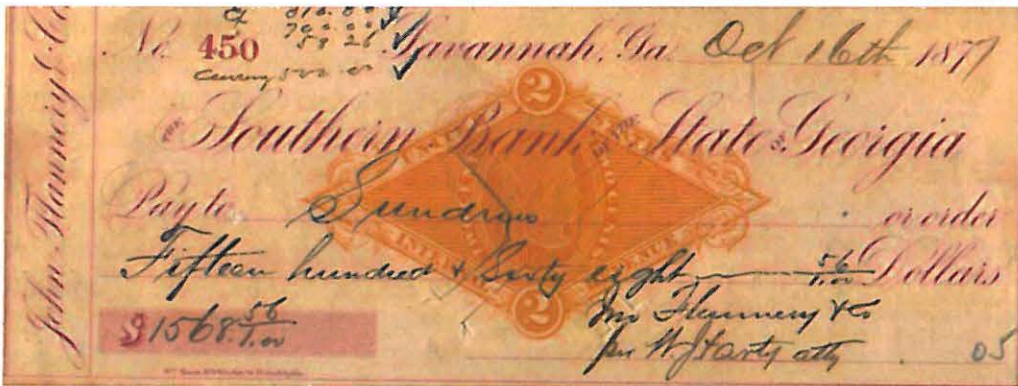 John Flannery & Co
& 310.00 ✓
700.00 ✓
No. 450 58 26 ✓ Savannah, Ga. Oct 16th 1877
Currency 500.00 ✓
THE Southern Bank OF THE State of Georgia
2
INTER
Pay to Sundries or order
Fifteen hundred & Sixty eight 56/1.00 Dollars
2
$1568.56/1.00
Jno Flannery & Co
per W. J. Harty atty
05